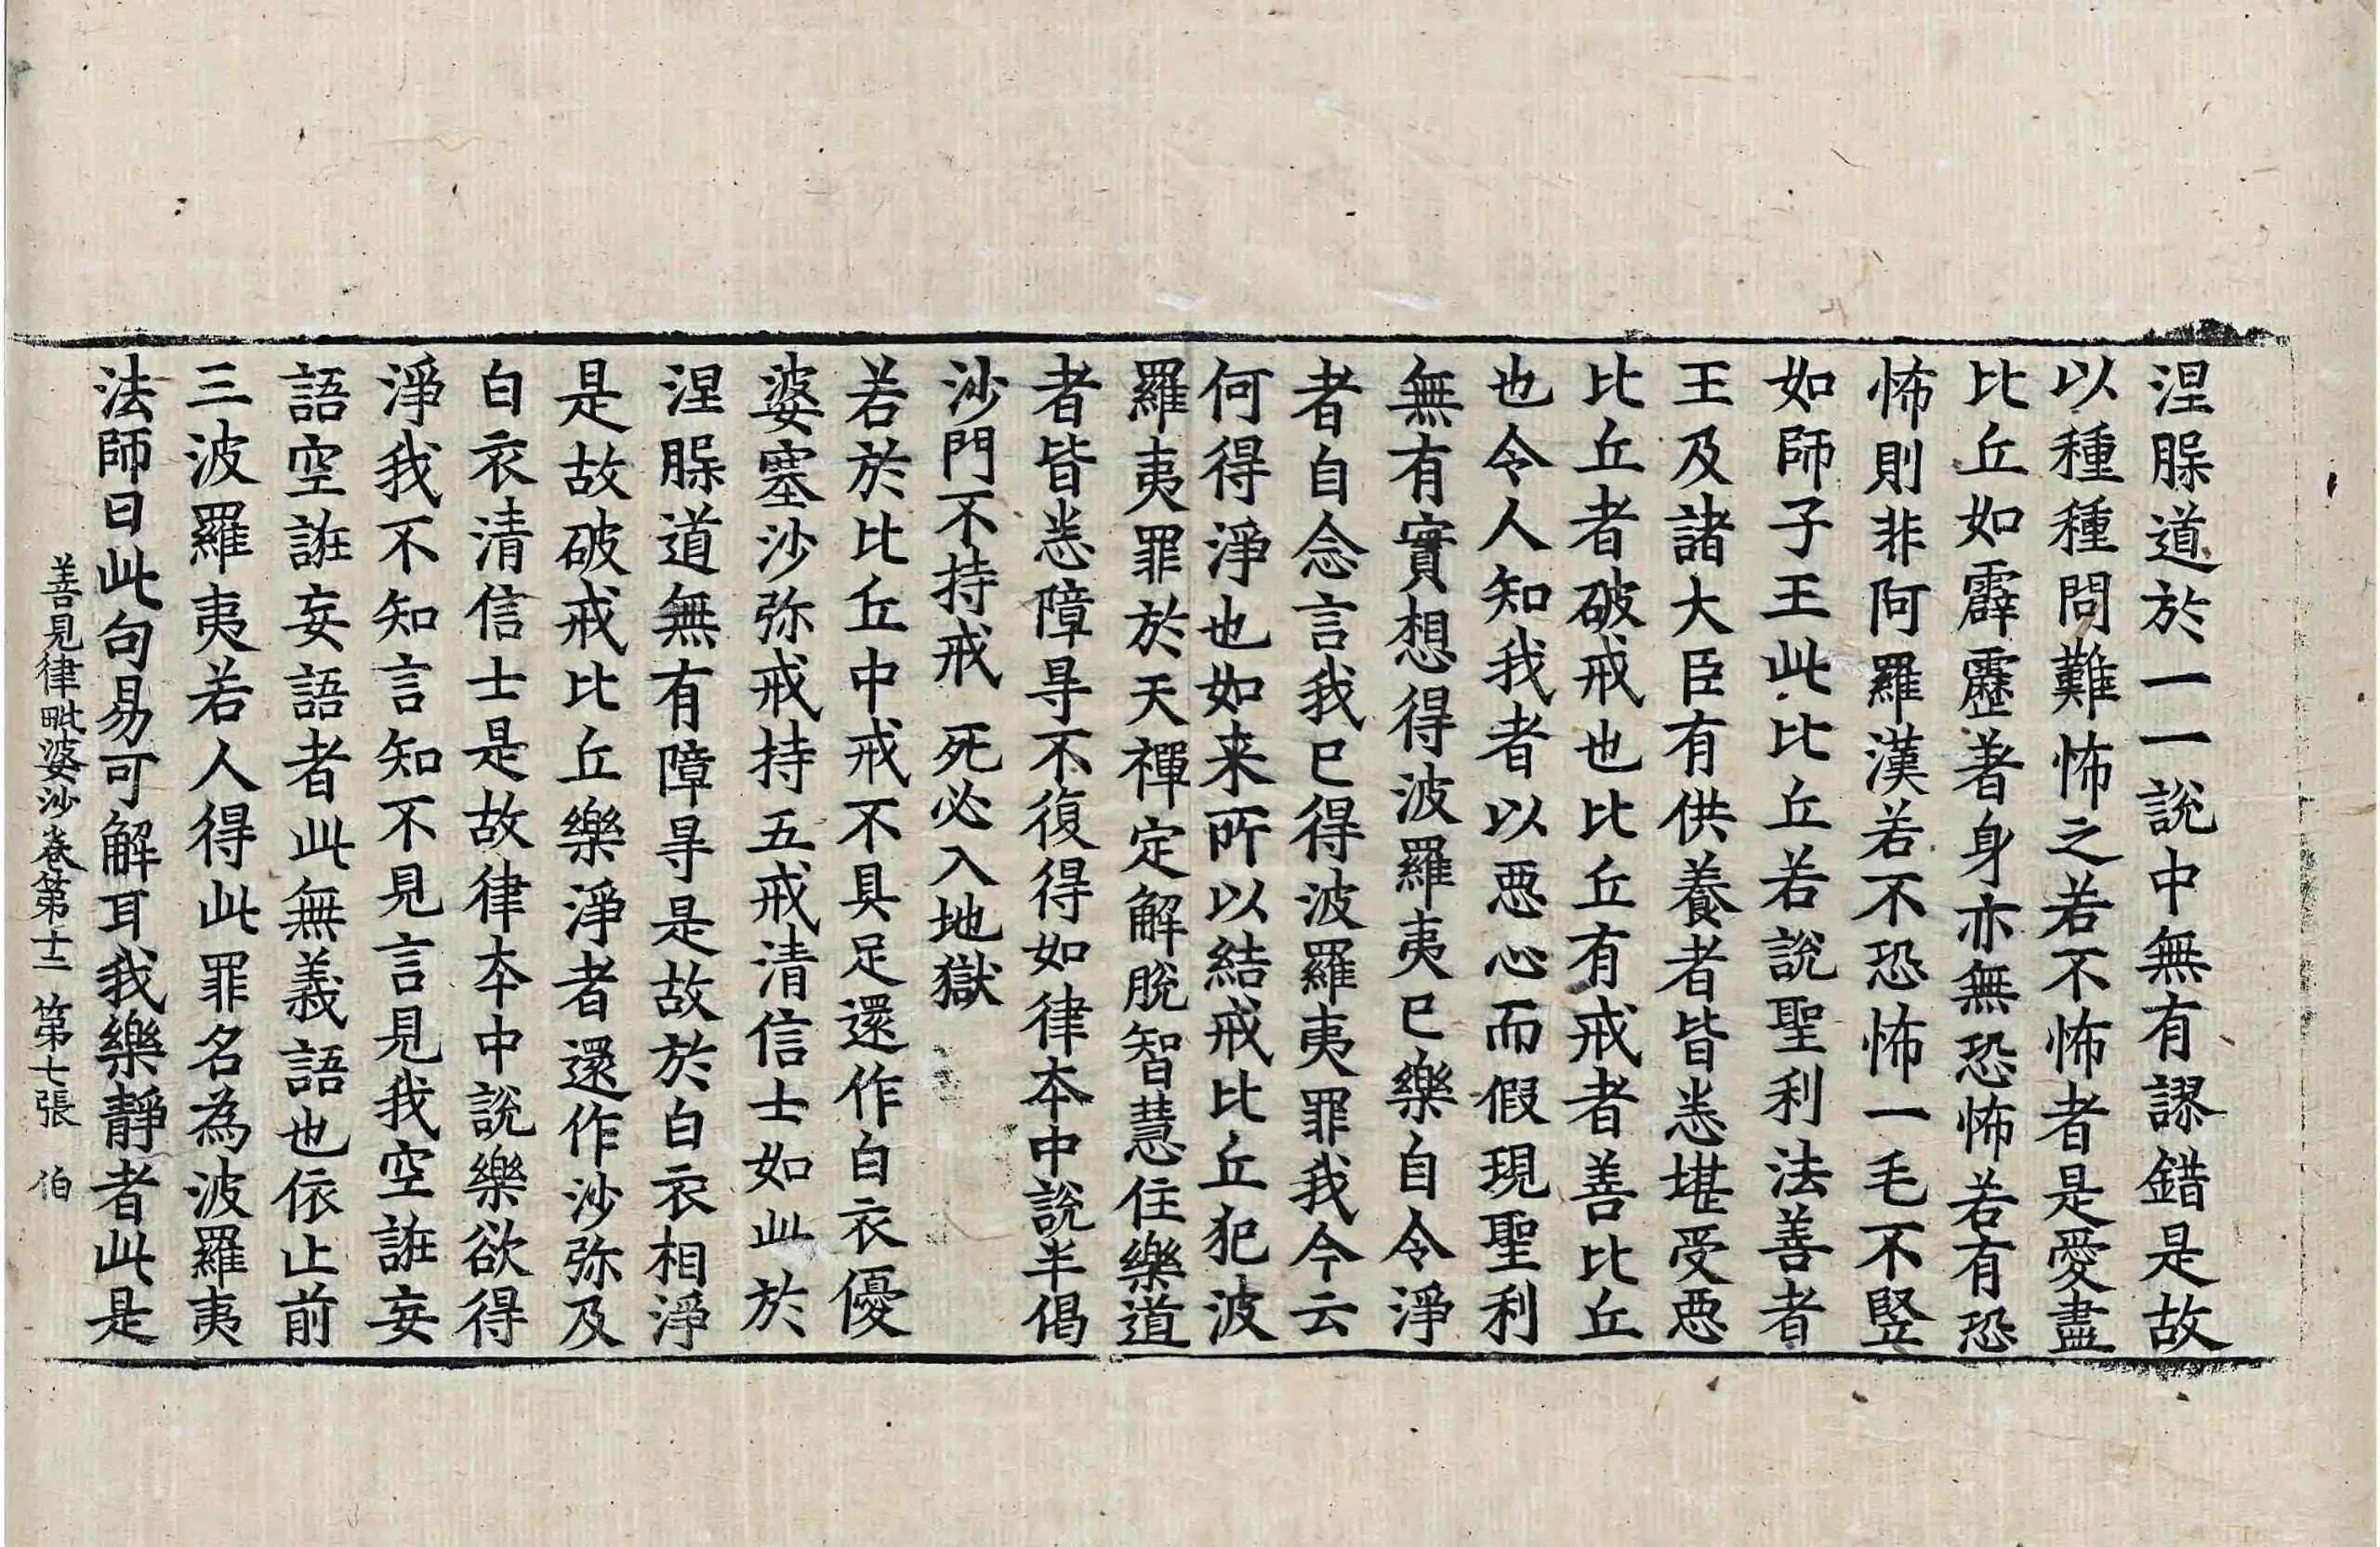 涅脲道於一一說中無有謬錯是故
以種種問難怖之若不怖者是愛盡
比丘如霹靂著身亦無恐怖若有恐
怖則非阿羅漢若不恐怖一毛不竪
如師子王此比丘若說聖利法善者
王及諸大臣有供養者皆悉堪受惡
比丘者破戒也比丘有戒者善比丘
也令人知我者以惡心而假現聖利
無有實想得波羅夷已樂自令淨
者自念言我已得波羅夷罪我今云
何得淨也如来所以結戒比丘犯波
羅夷罪於天禪定解脫智慧住樂道
者皆悉障㝵不復得如律本中說半偈
沙門不持戒 死必入地獄
若於比丘中戒不具足還作白衣優
婆塞沙弥戒持五戒清信士如此於
涅脲道無有障㝵是故於白衣相淨
是故破戒比丘樂淨者還作沙弥及
白衣清信士是故律本中說樂欲得
淨我不知言知不見言見我空誑妄
語空誑妄語者此無義語也依止前
三波羅夷若人得此罪名為波羅夷
法師曰此句易可解耳我樂靜者此是
善見律毗婆沙卷第十二 第七張 伯